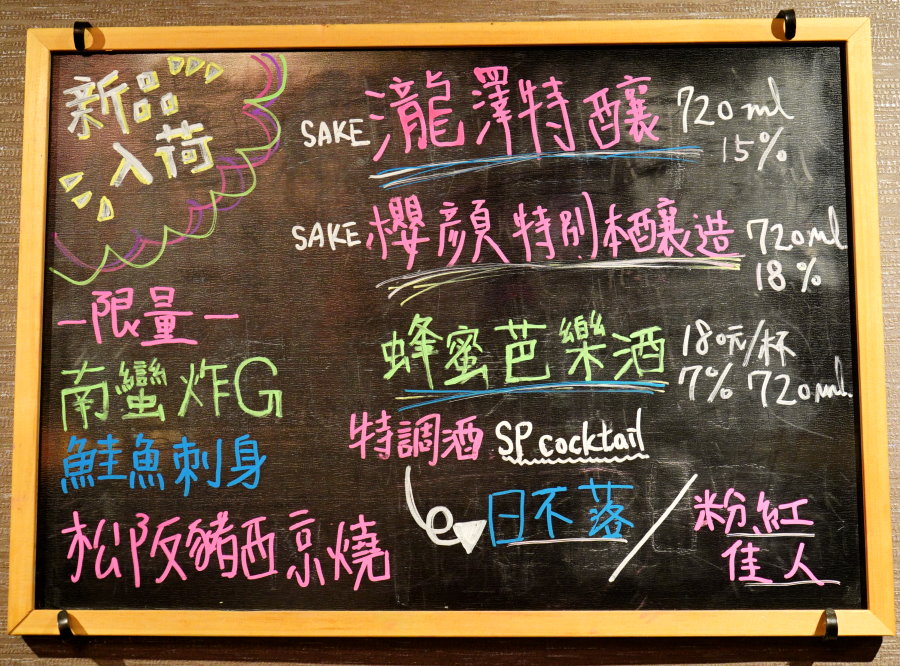 新品
入荷
SAKE 瀧澤特釀 720ml
15%
SAKE 櫻顏特別本釀造 720ml
18%
一限量一
南蠻炸G
鮭魚刺身
松阪豬西京燒
蜂蜜芭樂酒 180元/杯
7% 720ml
特調酒 SP cocktail
日不落 / 粉紅
佳人